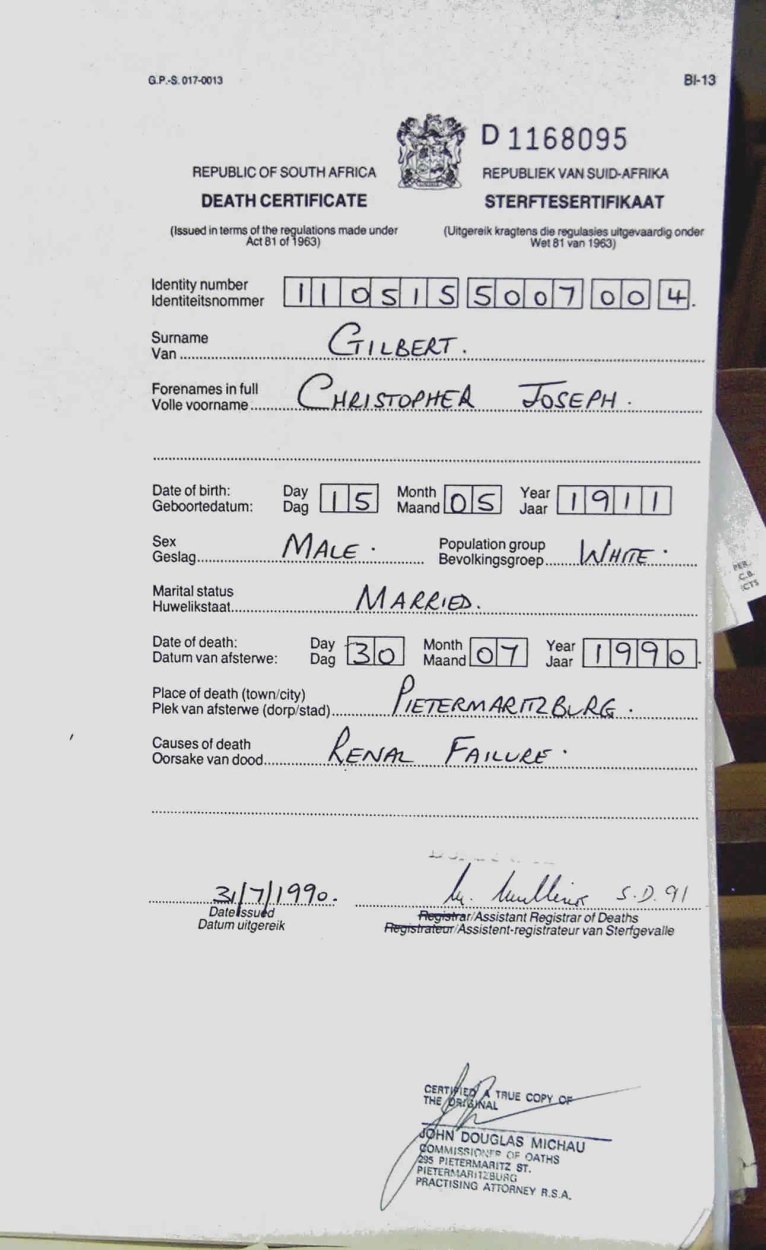 G.P.-S. 017-0013
BI-13
D 1168095
REPUBLIC OF SOUTH AFRICA
REPUBLIEK VAN SUID-AFRIKA
DEATH CERTIFICATE
STERFTESERTIFIKAAT
(Issued in terms of the regulations made under
Act 81 of 1963)
(Uitgereik kragtens die regulasies uitgevaardig onder
Wet 81 van 1963)
Identity number
Identiteitsnommer 110515 5007 00 4.
Surname
Van GILBERT.
Forenames in full
Volle voorname CHRISTOPHER JOSEPH.
Date of birth: Day 15 Month 05 Year 1911
Geboortedatum: Dag Maand Jaar
Sex Population group
Geslag MALE. Bevolkingsgroep WHITE.
Marital status
Huwelikstaat MARRIED.
Date of death: Day 30 Month 07 Year 1990.
Datum van afsterwe: Dag Maand Jaar
Place of death (town/city)
Plek van afsterwe (dorp/stad) PIETERMARITZBURG.
Causes of death
Oorsake van dood RENAL FAILURE.
31/7/1990. S.D. 91
Date issued
Datum uitgereik
Registrar/Assistant Registrar of Deaths
Registrateur/Assistent-registrateur van Sterfgevalle
CERTIFIED A TRUE COPY OF
THE ORIGINAL
JOHN DOUGLAS MICHAU
COMMISSIONER OF OATHS
295 PIETERMARITZ ST.
PIETERMARITZBURG
PRACTISING ATTORNEY R.S.A.
PER.
C.B.